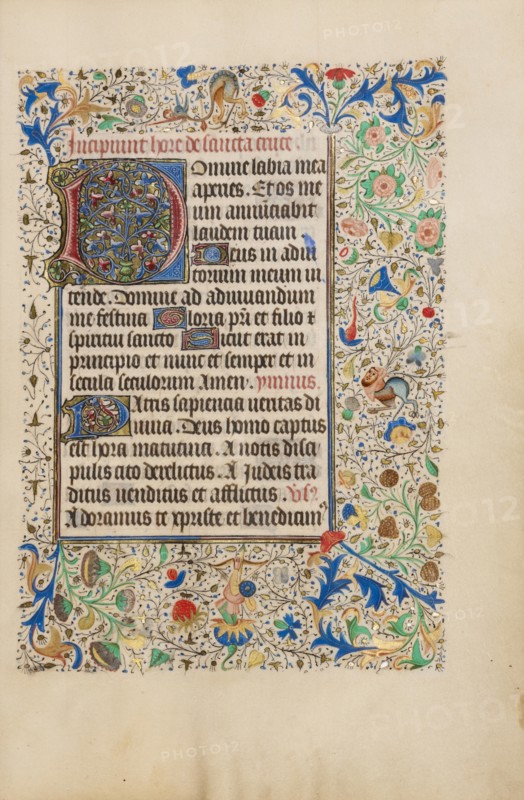 Incipiunt hore de sancta cruce
Domine labia mea
aperies. Et os me
um annuciabit
laudem tuam
Deus in adiu
torium meum in
tende. Domine ad adiuuandum
me festina Gloria pri et filio ⁊
spiritui sancto Sicut erat in
principio et nunc et semper et in
secula seculorum Amen. ymnus.
Patris sapiencia ueritas di
uina. Deus homo captus
est hora matutina. A notis disci
pulis cito derelictus. A Judeis tra
ditus uenditus et afflictus.
Adoramus te xpriste et benedicim
PHOTO12